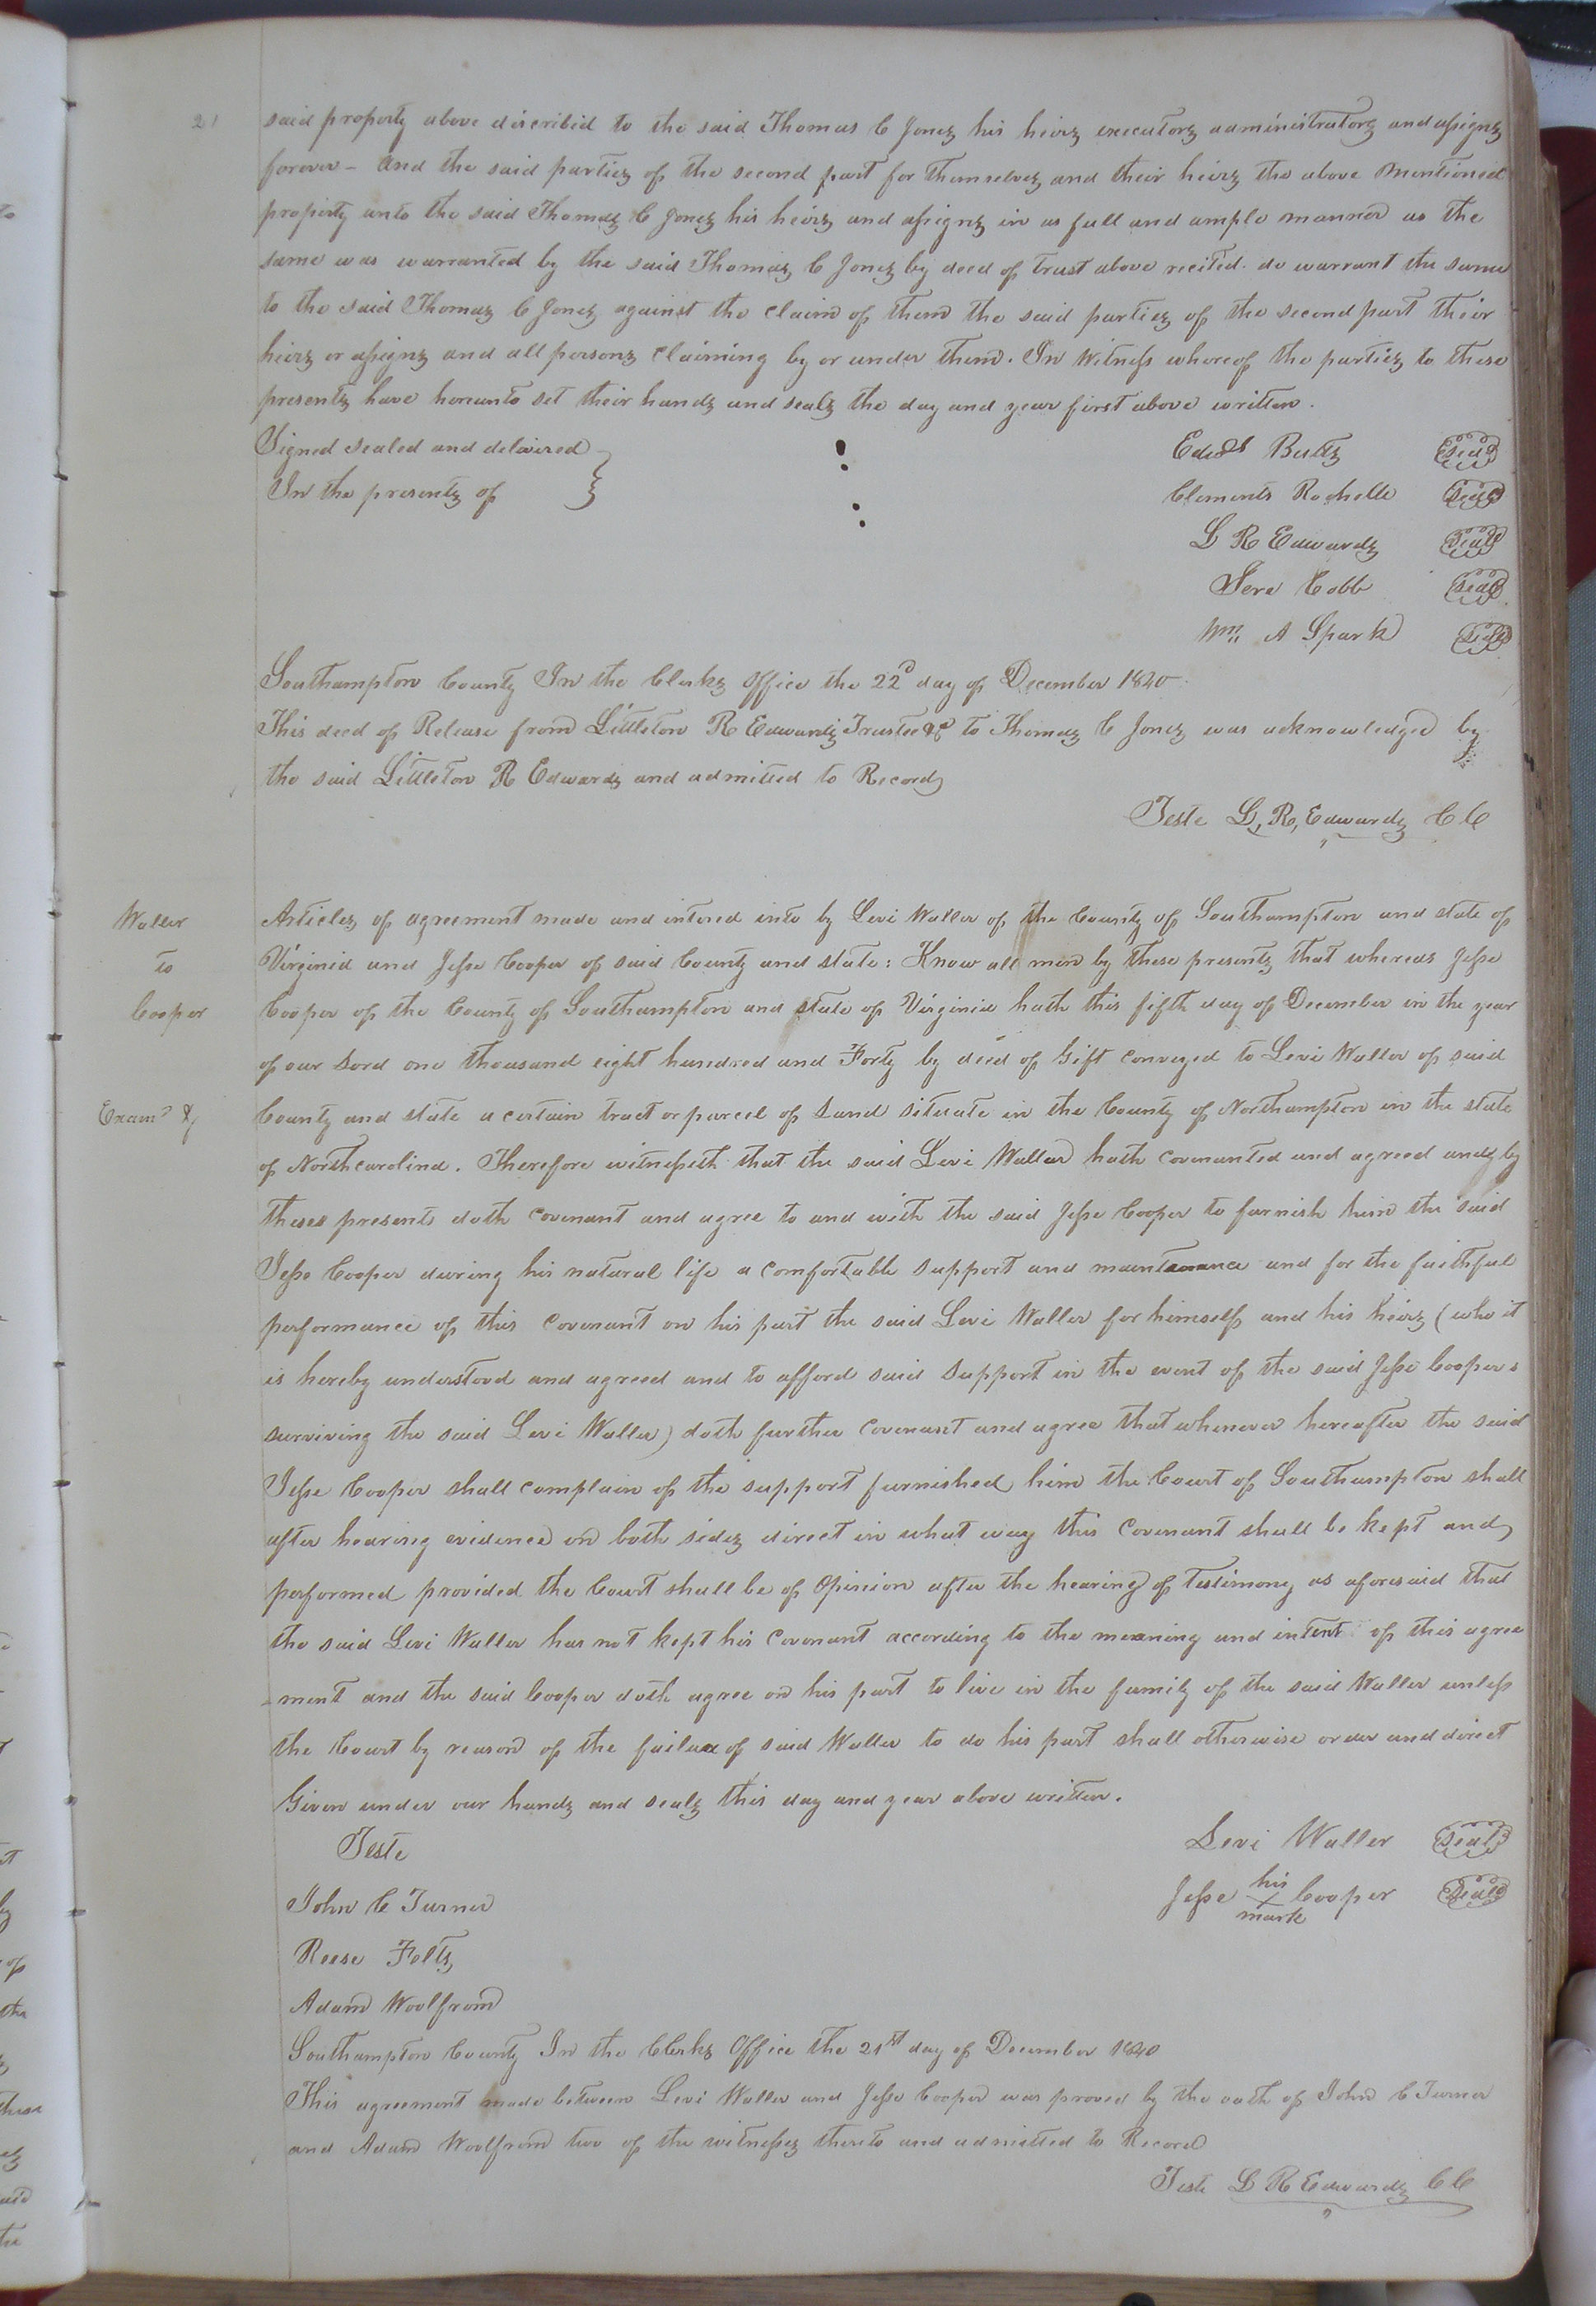 21
said property above discribed to the said Thomas C Jones his heirs executors administrators and assigns
forever - and the said parties of the second part for themselves and their heirs the above mentioned
property unto the said Thomas C Jones his heirs and assigns in as full and ample manner as the
same was warranted by the said Thomas C Jones by deed of trust above recited. do warrant the same
to the said Thomas C Jones against the claim of them the said parties of the second part their
heirs or assigns and all persons claiming by or under them. In Witness whereof the parties to these
presents have hereunto set their hands and seals the day and year first above written.
Signed sealed and delivered
In the presents of
Edwd Butts Seal
Clements Rochelle Seal
L R Edwards Seal
Sera Cobb Seal
Wm A Spark Seal
Southampton County In the Clerks Office the 22d day of December 1840.
This deed of Release from Littleton R Edwards Trustee &c to Thomas C Jones was acknowledged by
the said Littleton R Edwards and admitted to Record
Teste L, R, Edwards C C
Waller
to
Cooper
Examd &
Articles of agreement made and intered into by Levi Waller of the County of Southampton and state of
Virginia and Jesse Cooper of said County and state: Know all men by these presents that whereas Jesse
Cooper of the County of Southampton and state of Virginia hath this fifth day of December in the year
of our Lord one thousand eight hundred and Forty by deed of Gift conveyed to Levi Waller of said
County and state a certain tract or parcel of Land situate in the County of Northampton in the state
of Northcarolina. Therefore witnesseth that the said Levi Waller hath covenanted and agreed and by
these presents doth covenant and agree to and with the said Jesse Cooper to furnish him the said
Jesse Cooper during his natural life a comfortable support and maintanance and for the faithful
performance of this covenant on his part the said Levi Waller for himself and his heirs (who it
is hereby understood and agreed and to afford said support in the event of the said Jesse Coopers
surviving the said Levi Waller) doth further covenant and agree that whenever hereafter the said
Jesse Cooper shall complain of the support furnished him the Court of Southampton shall
after hearing evidence on both sides direct in what way this covenant shall be kept and
performed provided the Court shall be of Opinion after the hearing of Testimony as aforesaid that
the said Levi Waller has not kept his covenant according to the meaning and intent of this agree
-ment and the said Cooper doth agree on his part to live in the family of the said Waller unless
the Court by reason of the failure of said Waller to do his part shall otherwise order and direct
Given under our hands and seals this day and year above written.
Teste
Levi Waller Seal
Jesse his X mark Cooper Seal
John C Turner
Reese Felts
Adam Woolfrom
Southampton County In the Clerks Office the 21st day of December 1840
This agreement made between Levi Waller and Jesse Cooper was proved by the oath of John C Turner
and Adam Woolfrom two of the witnesses thereto and admitted to Record
Teste L R Edwards C C